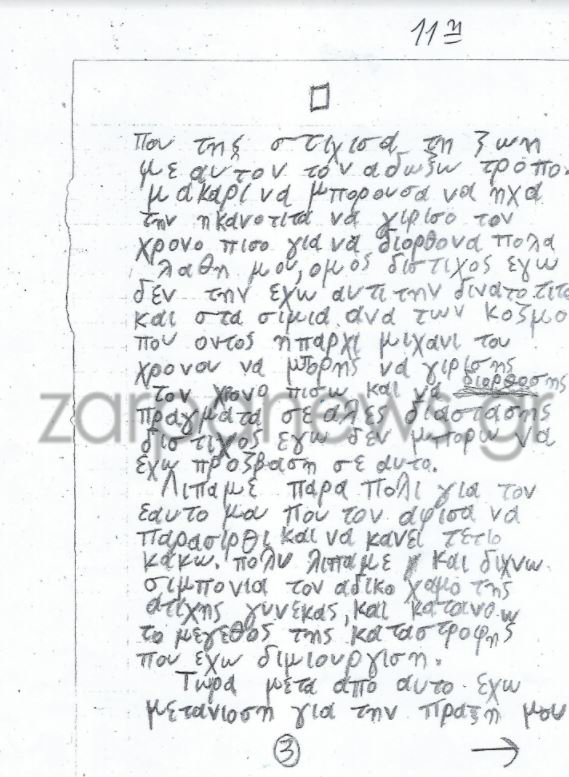 11η
που της στιχισα τη ζωη
με αυτον τον αδωξω τροπο.
μακαρι να μπορουσα να ηχα
την ηκανοτιτα να γιρισο τον
χρονο πισο για να διορθονα πολα
λαθη μου, ομος διστιχος εγω
δεν την εχω αυτι την δινατοτιτα
και στα σιμια ανα των κοσμο
που οντος ηπαρχι μιχανι του
χρονου να μπορης να γιρισης
τον χρονο πισω και να διορθοσης
πραγματα σε αλες διαστασης
διστιχος εγω δεν μπορω να
εχω προξβαση σε αυτα.
Λιπαμε παρα πολι για τον
εαυτο μα που τον αφισα να
παρασιρθι και να κανει τετιο
κακω. πολυ λιπαμε και διχνω
σιμπονια τον αδικο χαμο της
ατιχης γυνεκας, και κατανοω
το μεγεθος της καταστροφης
που εχω διμιουργιση.
Τωρα μετα απο αυτο εχω
μετανιοση για την πραξη μου
③ →
zarpanews.gr